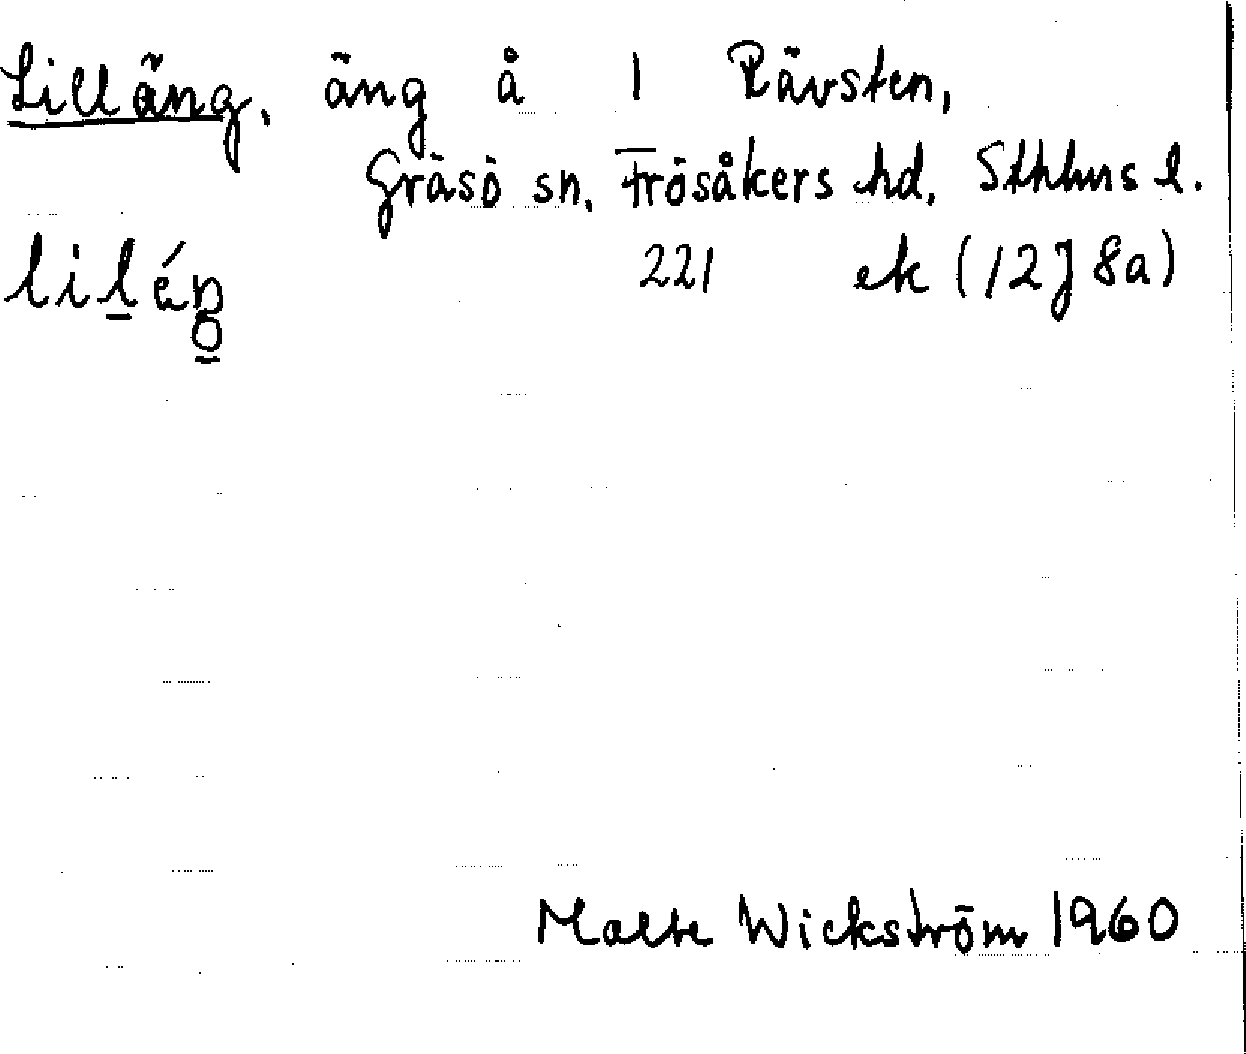 Lilläng, äng å 1 Rävsten,
Gräsö sn. Frösåkers hd, Sthlms l.
221 ek (12J 8a)
Malte Wickström 1960